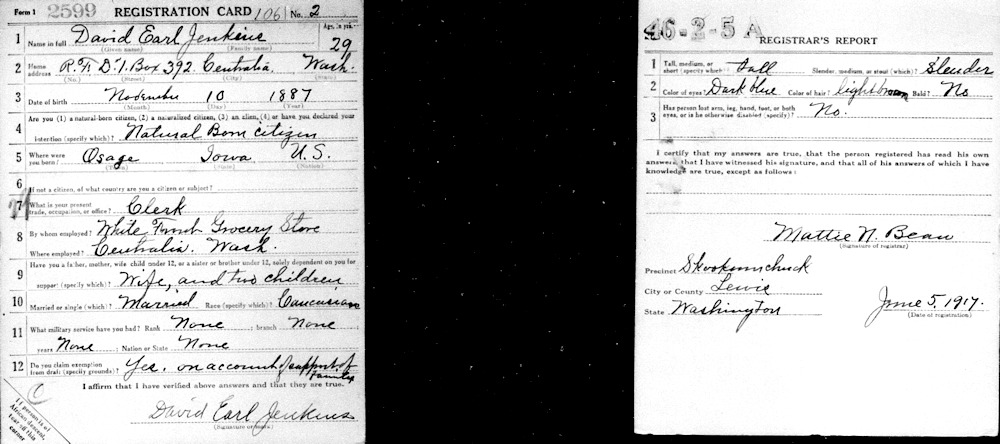 Form 1 2599 REGISTRATION CARD 106 No. 2
1 Name in full David Earl Jenkins Age, in yrs. 29
(Given name) (Family name)
2 Home address R.F.D. 1. Box 392 Centralia, Wash.
(No.) (Street) (City) (State)
3 Date of birth November 10 1887
(Month) (Day) (Year)
4 Are you (1) a natural-born citizen, (2) a naturalized citizen, (3) an alien, (4) or have you declared your
intention (specify which)? Natural Born citizen
5 Where were you born? Osage Iowa U.S.
(Town) (State) (Nation)
6 If not a citizen, of what country are you a citizen or subject?
7 What is your present trade, occupation, or office? Clerk
8 By whom employed? White Front Grocery Store
Where employed? Centralia. Wash.
9 Have you a father, mother, wife, child under 12, or a sister or brother under 12, solely dependent on you for
support (specify which)? Wife, and two children
10 Married or single (which)? Married Race (specify which)? Caucasian
11 What military service have you had? Rank None ; branch None ;
years None ; Nation or State None
12 Do you claim exemption from draft (specify grounds)? Yes. on account of support of
family
I affirm that I have verified above answers and that they are true.
David Earl Jenkins
(Signature or mark)
If person is of
African descent,
tear off this
corner
46-2-5 A
REGISTRAR'S REPORT
1 Tall, medium, or short (specify which)? tall Slender, medium, or stout (which)? Slender
2 Color of eyes? Dark blue Color of hair? light brown Bald? No
3 Has person lost arm, leg, hand, foot, or both
eyes, or is he otherwise disabled (specify)? No.
I certify that my answers are true, that the person registered has read his own
answers, that I have witnessed his signature, and that all of his answers of which I have
knowledge are true, except as follows:
Mattie N. Bean
(Signature of registrar)
Precinct Skookumchuck
City or County Lewis
State Washington June 5, 1917.
(Date of registration)